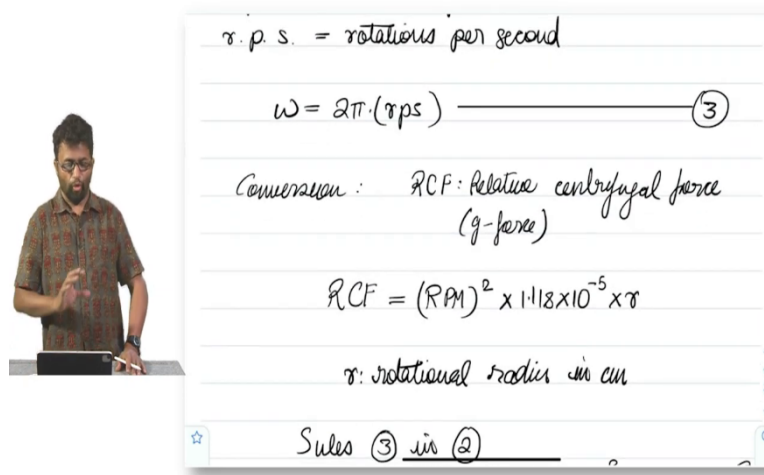 r.p.s. = rotations per second
ω = 2π.(rps) ——— ③
Conversion : RCF : Relative centrifugal force
(g-force)
RCF = (RPM)² × 1.118×10⁻⁵ × r
r: rotational radius in cm
Subs ③ in ②